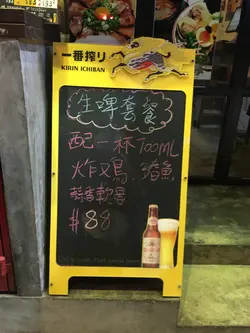 一番搾り
KIRIN ICHIBAN
生啤套餐
配一杯700ML
炸叉鳥、鱔魚
蒜香軟殼
$88